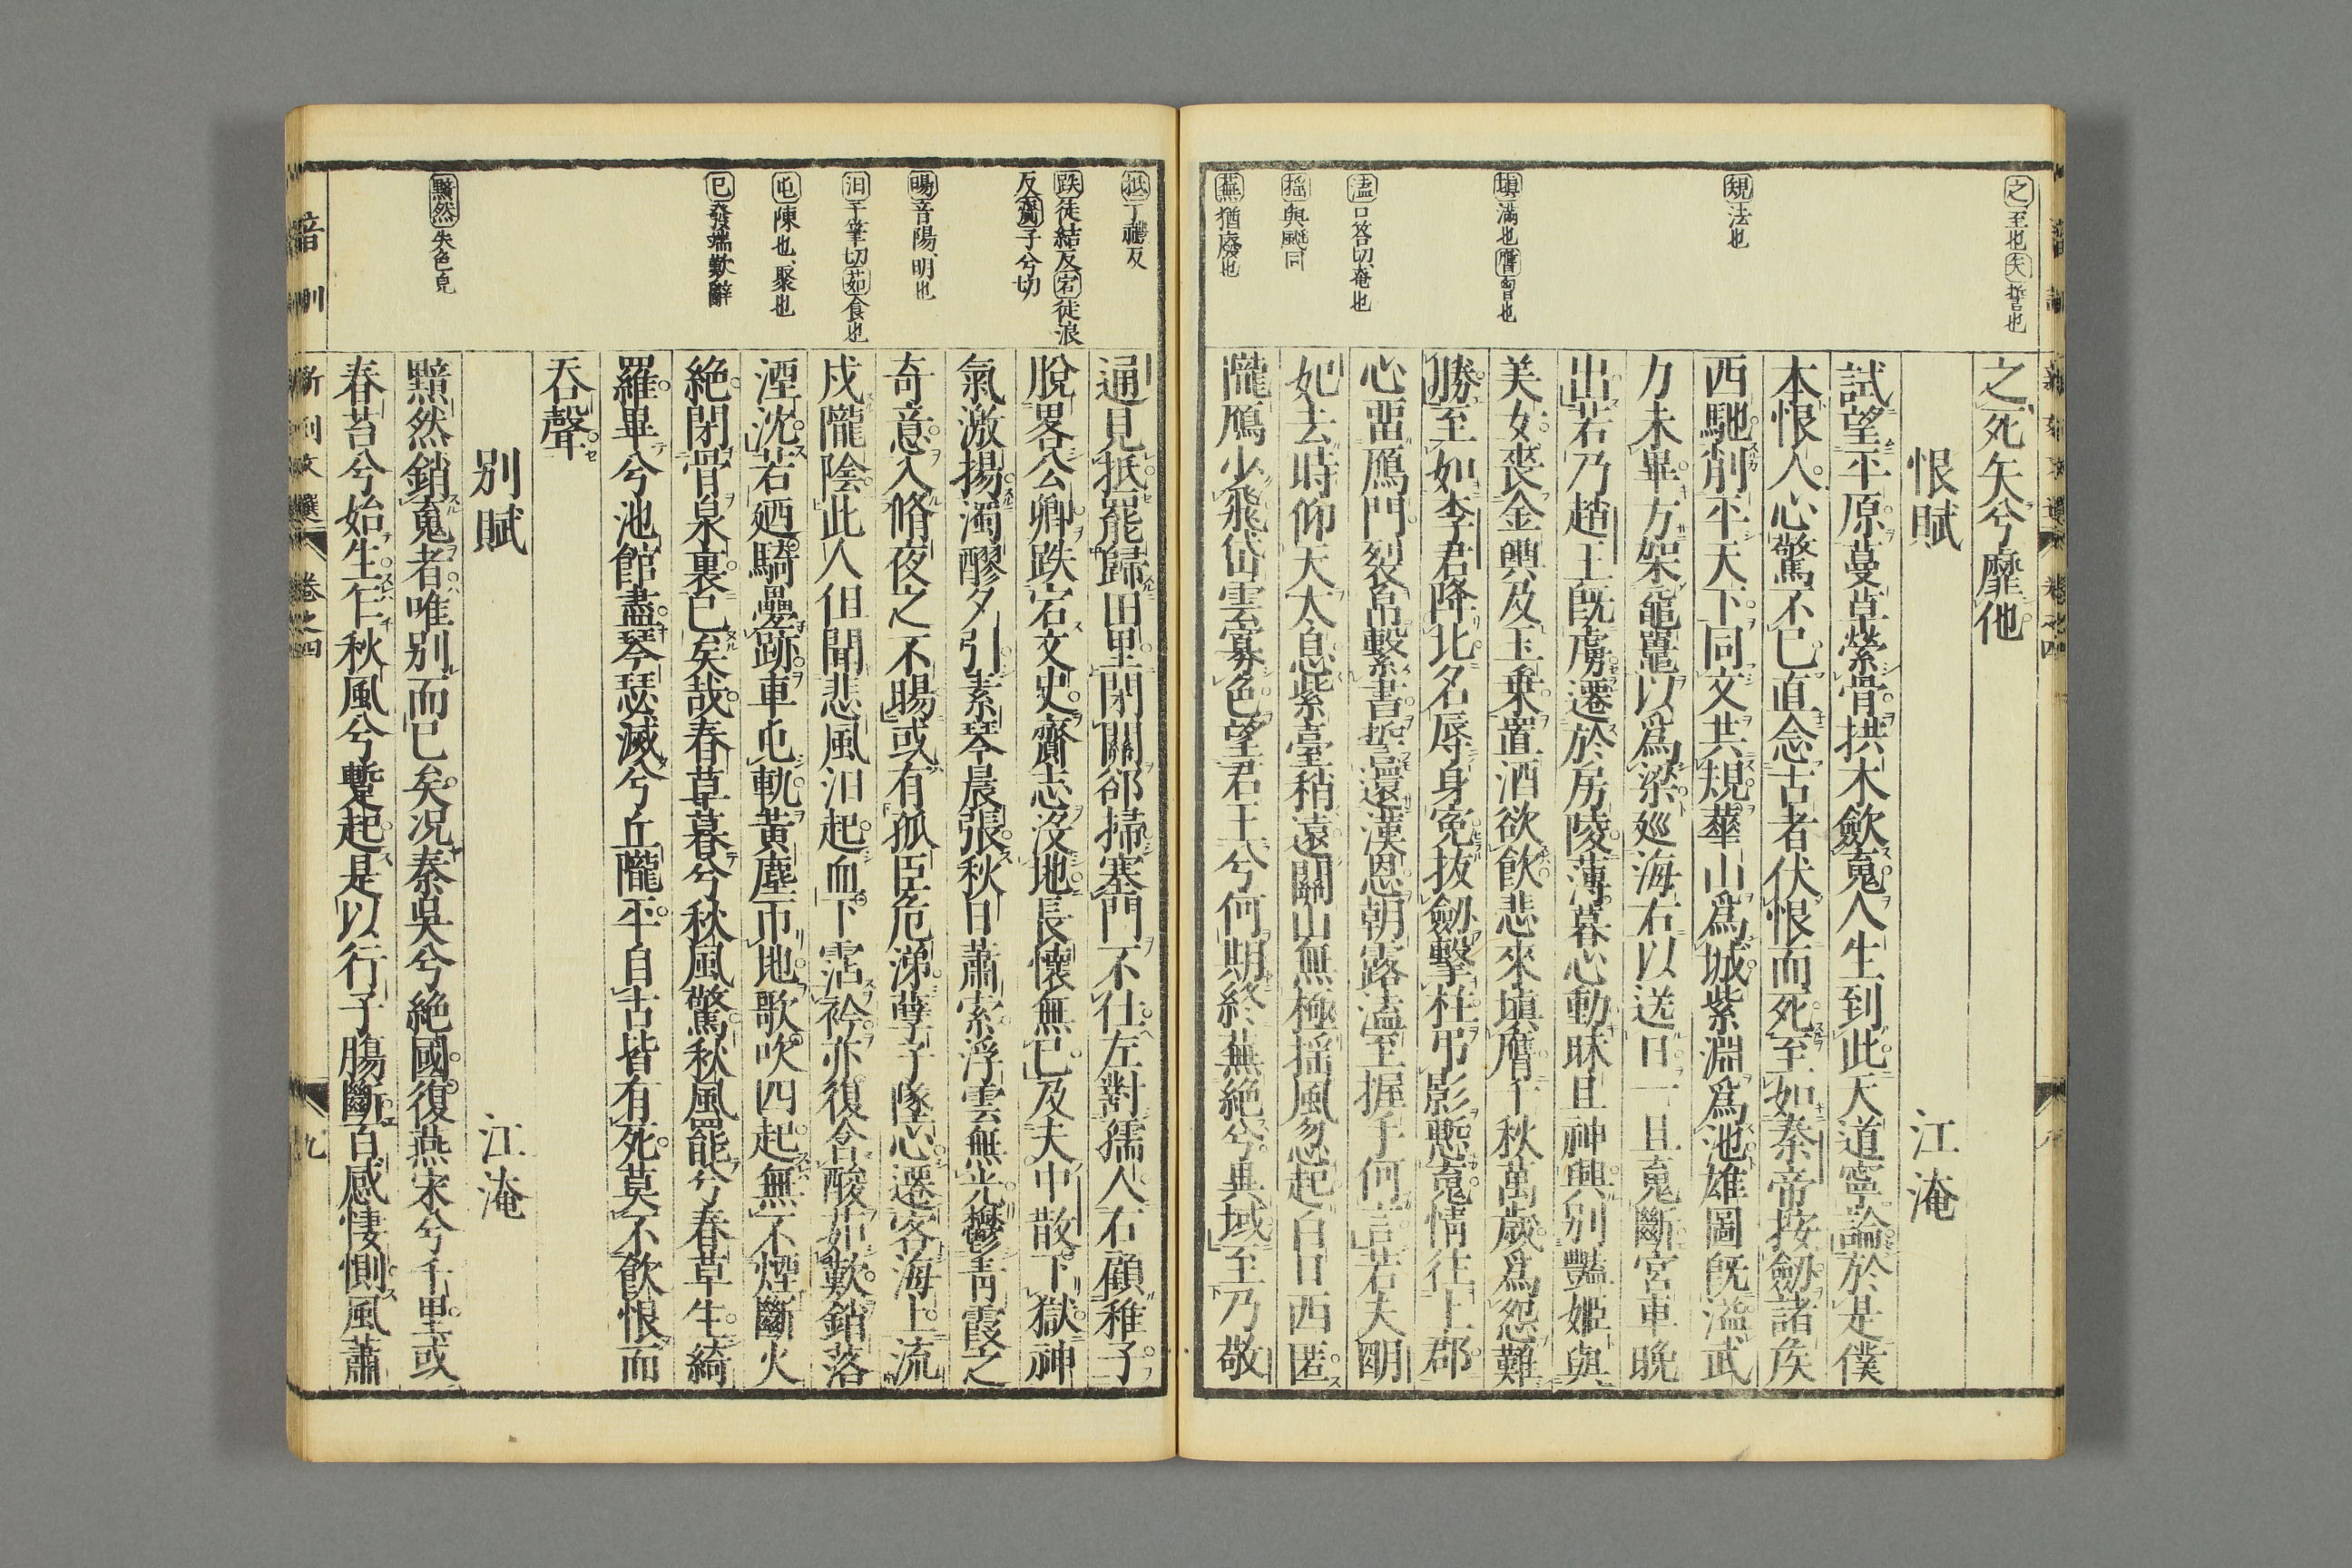 之至也矢誓也
規法也
填滿也膺胷也
溘口荅切奄也
搖與颻同
蕪猶廢也
之死矢兮靡他
恨賦　江淹
試望平原蔓草縈骨拱木歛䰟人生到此天道寧論於是僕
本恨人心驚不已直念古者伏恨而死至如秦帝按劒諸矦
西馳削平天下同文共規華山爲城紫淵爲池雄圖旣溢武
力未畢方架黿鼉以爲梁廵海右以送日一旦䰟斷宮車晚
出若乃趙王旣虜遷於房陵薄暮心動昧旦神興別豔姬與
美女喪金輿及玉乗置酒欲飲悲來填膺千秋萬歲爲怨難
勝至如李君降北名辱身寃拔劒擊柱弔影慙䰟情往上郡
心畱鴈門裂帛繫書誓還漢恩朝露溘至握手何言若夫明
妃去時仰天太息紫臺稍遠關山無極揺風忽起白日西匿
隴鴈少飛岱雲寡色望君王兮何期終蕪絶兮異域至乃敬
抵丁禮反
跌徒結反宕徒浪
反齎子兮切
暘音陽明也
汩于筆切茹食也
屯陳也聚也
已發端歎辭
黯然失色皃
通見抵罷歸田里閉關郤掃塞門不仕左對孺人右顧稚子
脫畧公卿跌宕文史齎志沒地長懷無已及夫中散下獄神
氣激揚濁醪夕引素琴晨張秋日蕭索浮雲無光鬱青霞之
奇意入脩夜之不暘或有孤臣危涕孽子墜心遷客海上流
戍隴陰此人但聞悲風汩起血下霑衿亦復含酸茹歎銷落
湮沈若廼騎疊跡車屯軌黃塵帀地歌吹四起無不煙斷火
絶閉骨泉裏已矣哉春草暮兮秋風驚秋風罷兮春草生綺
羅畢兮池館盡琴瑟滅兮丘隴平自古皆有死莫不飲恨而
吞聲
別賦　江淹
黯然銷䰟者唯別而已矣況秦吳兮絶國復燕宋兮千里或
春苔兮始生乍秋風兮蹔起是以行子膓斷百感悽惻風蕭
卷之四
九